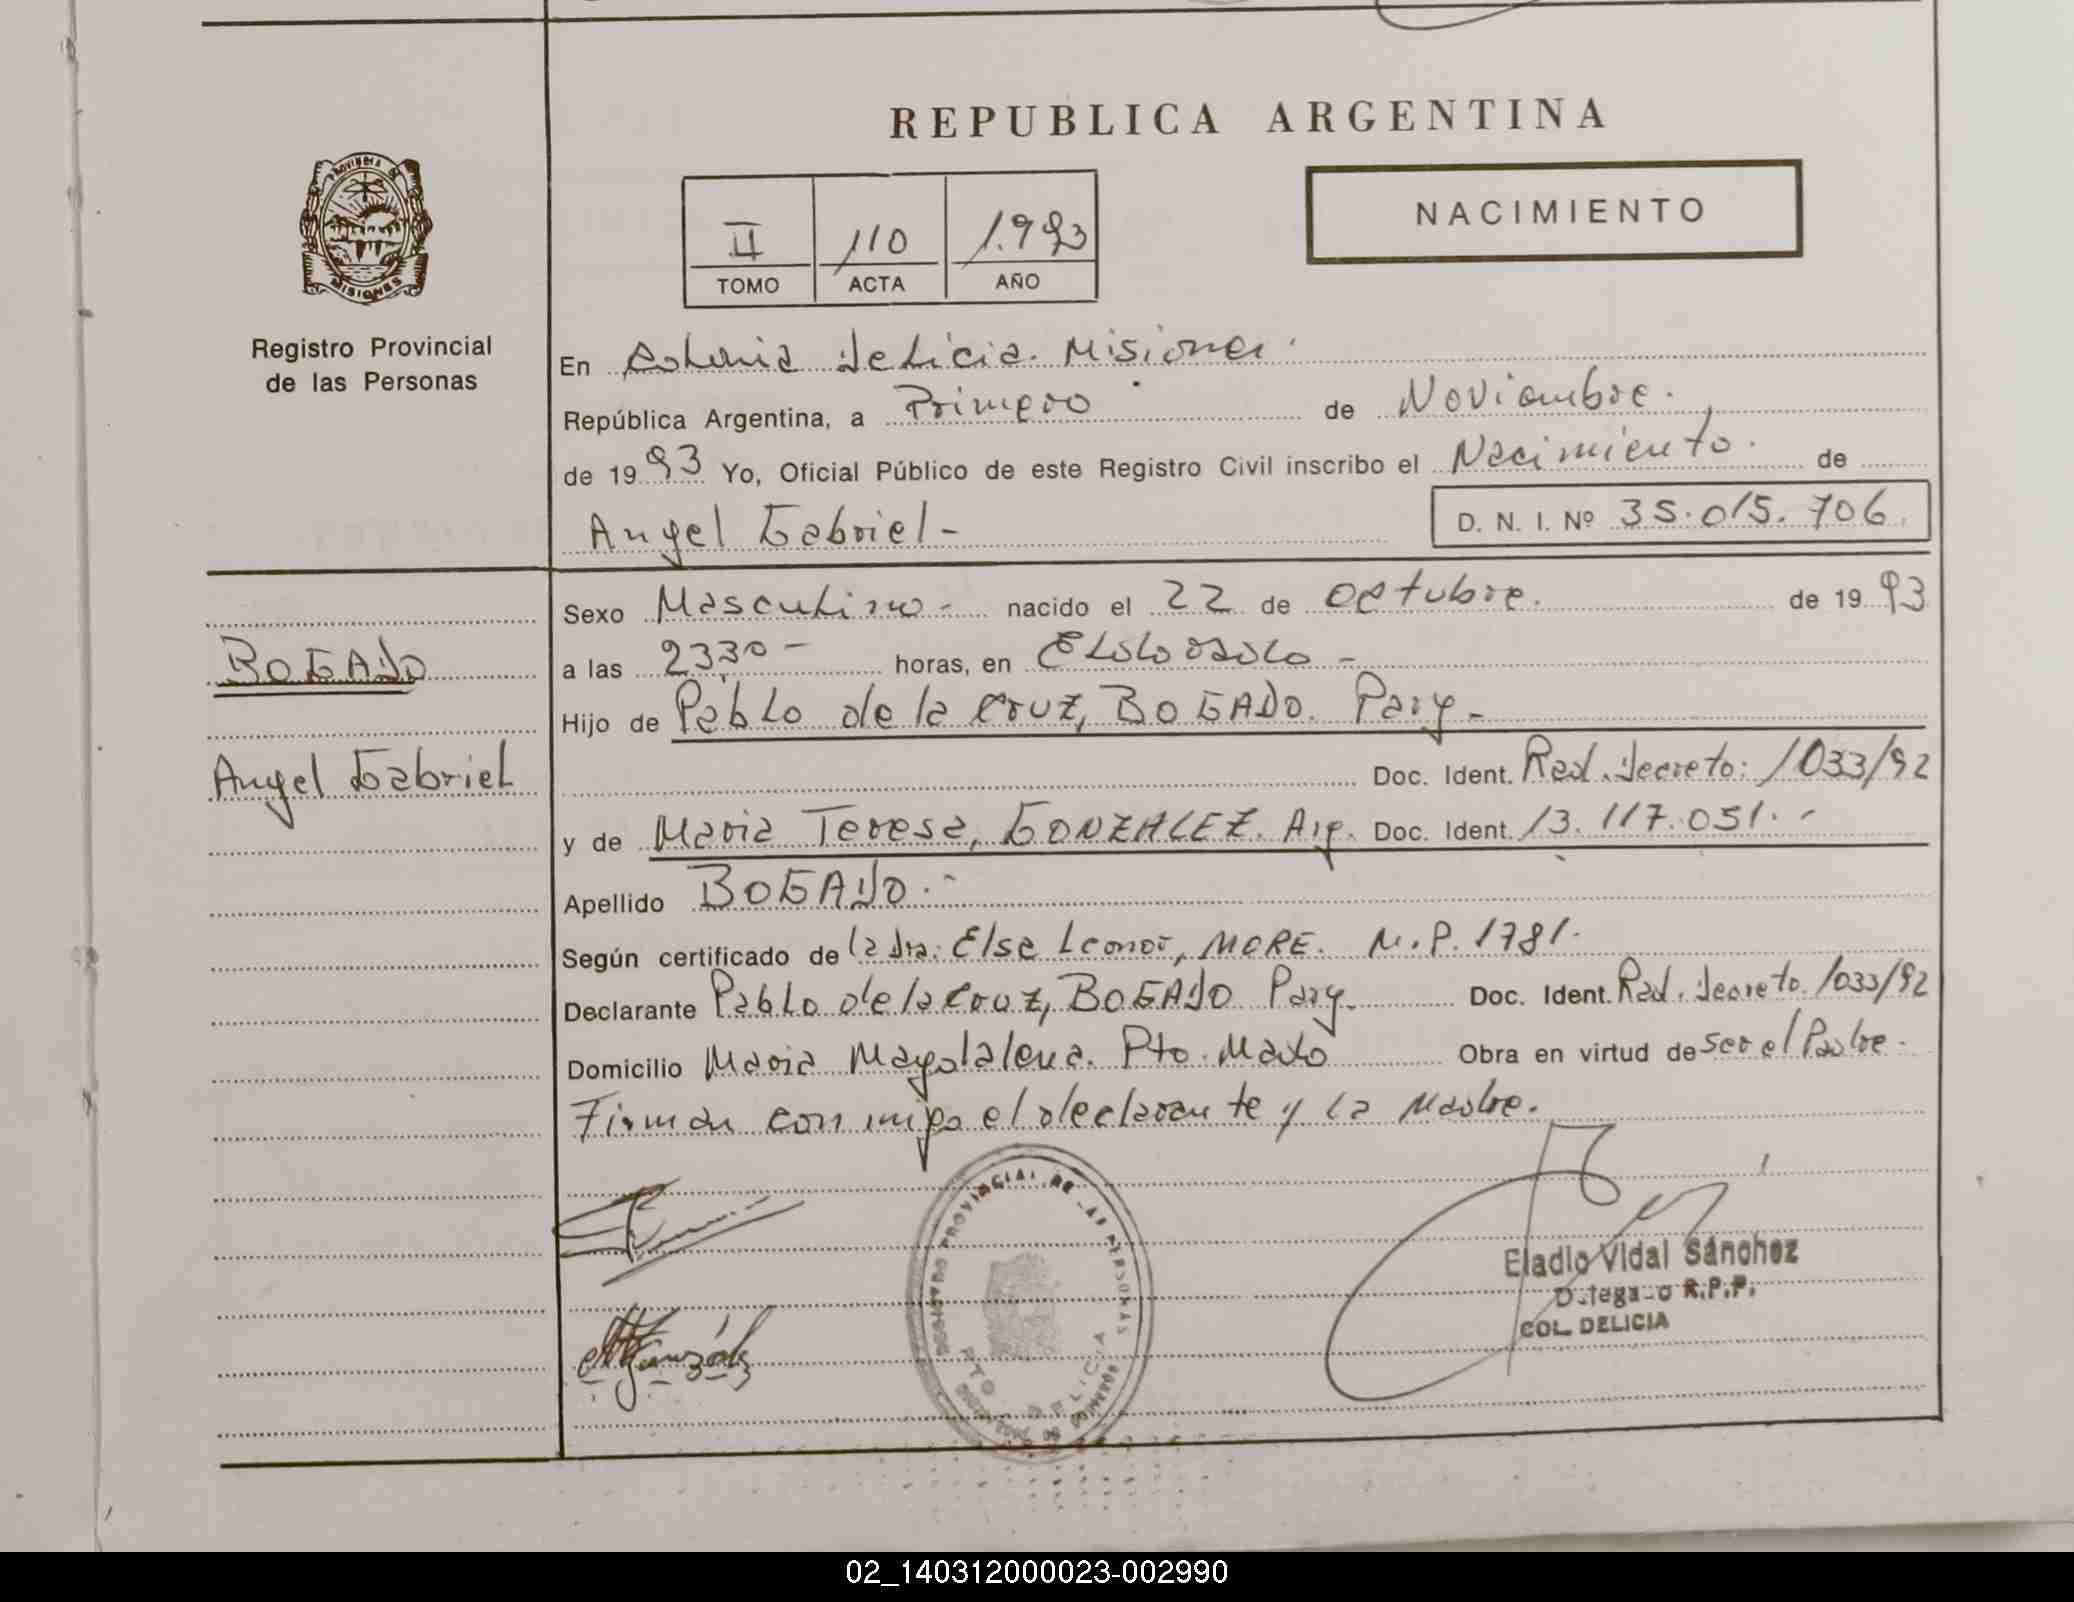 REPUBLICA ARGENTINA
PROVINCIA DE
MISIONES
Registro Provincial
de las Personas
II 110 1.993
TOMO ACTA AÑO
NACIMIENTO
En Colonia Delicia. Misiones.
República Argentina, a Primero de Noviembre.
de 1993 Yo, Oficial Público de este Registro Civil inscribo el Nacimiento. de
Angel Gabriel- D. N. I. Nº 35.015.706.
BOGADO
Angel Gabriel
Sexo Masculino- nacido el 22 de Octubre. de 1993
a las 2330- horas, en Eldorado-
Hijo de Pablo de la Cruz, BOGADO. Parg-
Doc. Ident. Rad. Decreto: 1033/92
y de Maria Teresa, GONZALEZ. Arg. Doc. Ident. 13.117.051.-
Apellido BOGADO.-
Según certificado de la Dra. Elsa Leonor, MORE. M.P. 1781.
Declarante Pablo de la Cruz, BOGADO Parg. Doc. Ident. Rad. Decreto. 1033/92
Domicilio Maria Magdalena. Pto. Mado Obra en virtud de ser el Padre.
Firman conmigo el declarante y la Madre.
REGISTRO PROVINCIAL DE LAS PERSONAS
PTO DELICIA
Eladio Vidal Sánchez
Delegado R.P.P.
COL. DELICIA
02_140312000023-002990